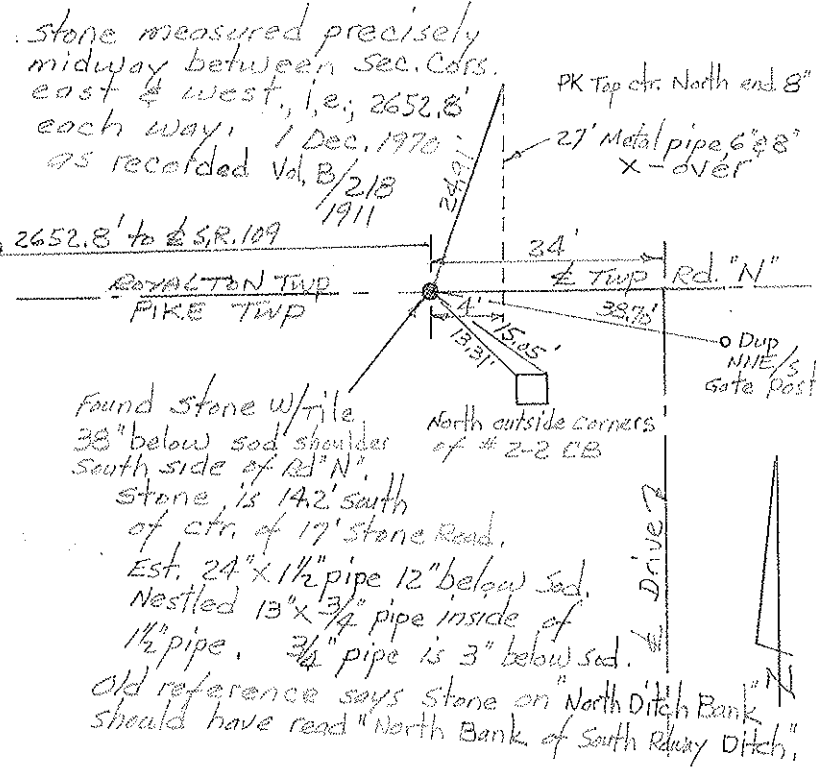 stone measured precisely
midway between Sec. Cors.
east & west, i.e., 2652.8'
each way. 1 Dec. 1970
as recorded Vol. B/218
1911
PK Top ctr. North end 8"
27' Metal pipe 6" & 8"
X-over
24.91
2652.8' to ℄ S.R. 109
34'
℄ Twp Rd. "N"
ROYALTON TWP
PIKE TWP
4'
38.70'
15.05'
13.31'
Dup
NNE/S
Gate Post
Found Stone W/Tile
38" below sod shoulder
South side of Rd "N".
Stone is 14.2' south
of ctr. of 17' Stone Road.
Est. 24" x 1½" pipe 12" below Sod.
Nestled 13" x ¾" pipe inside of
1½" pipe. ¾" pipe is 3" below sod.
Old reference says Stone on "North Ditch Bank"
should have read "North Bank of South Rdway Ditch".
North outside corners
of # 2-2 CB
℄ Drive